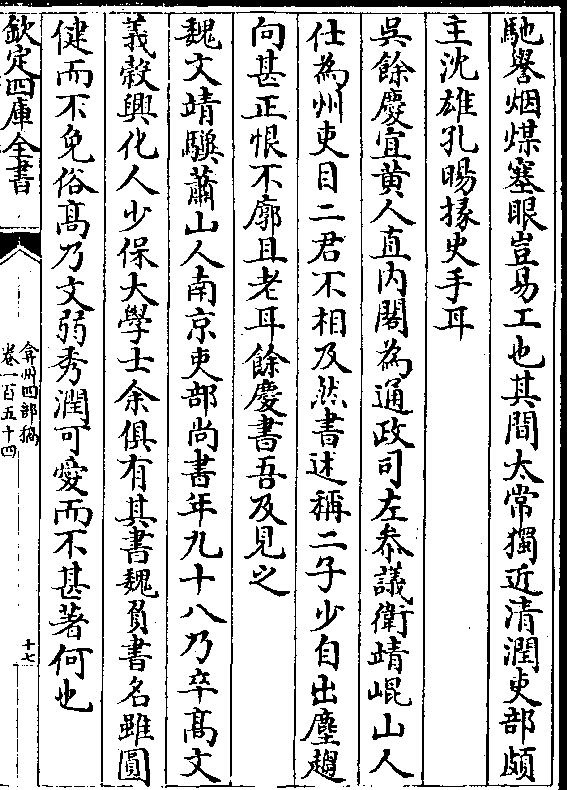 馳譽烟煤塞眼豈易工也其間太常獨近清潤吏部頗
主沈雄孔暘掾史手耳
呉餘慶宜黄人直内閣為通政司左叅議衛靖崐山人
仕為州吏目二君不相及然書述稱二子少自出塵趨
向甚正恨不廓且老耳餘慶書吾及見之
魏文靖驥蕭山人南京吏部尚書年九十八乃卒髙文
義榖興化人少保大學士余俱有其書魏負書名雖圓
健而不免俗髙乃文弱秀潤可愛而不甚著何也
欽定四庫全書
弇州四部稿
卷一百五十四
十七